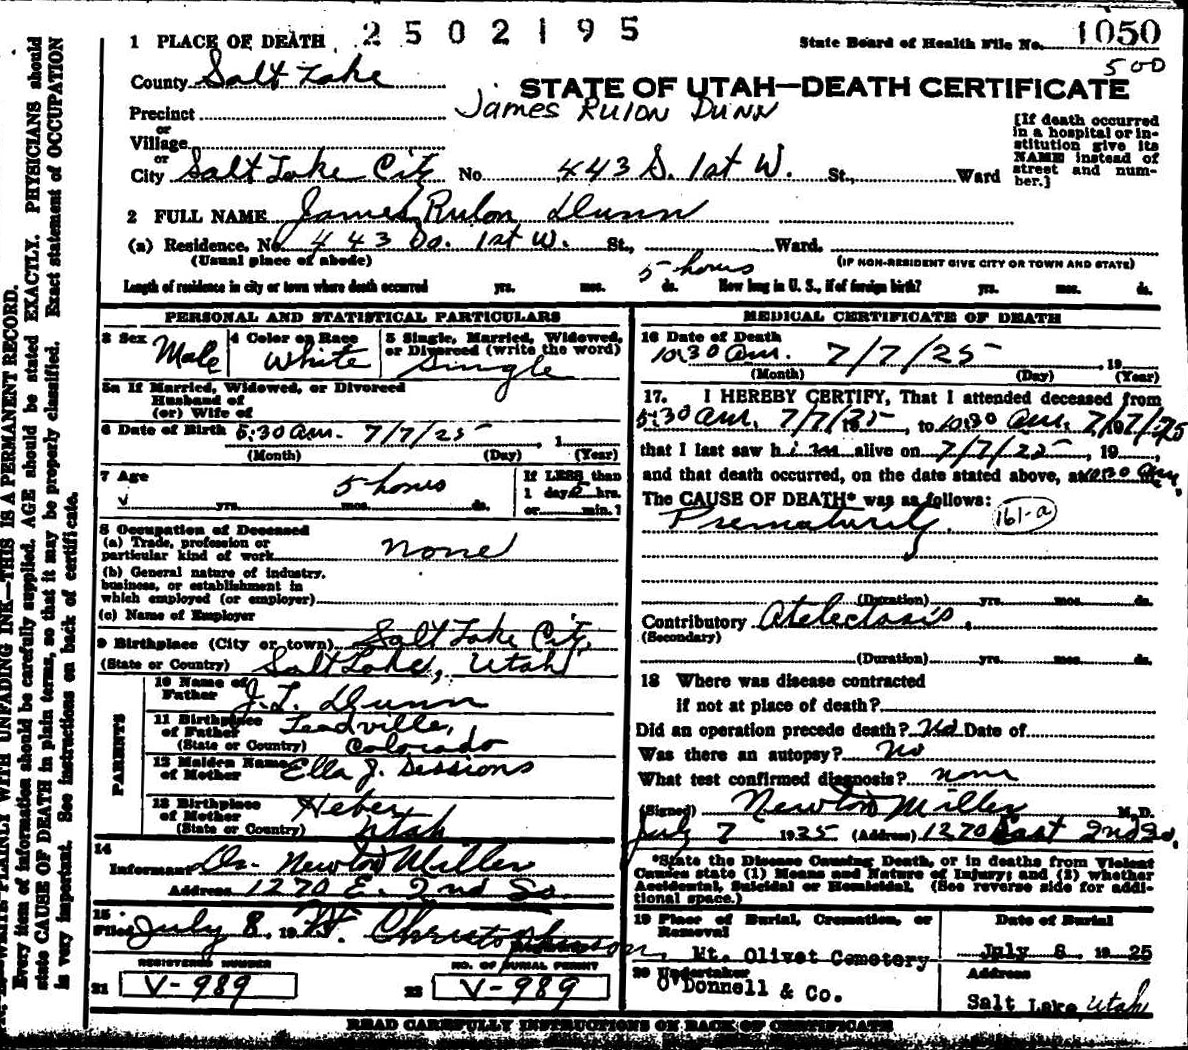 1 PLACE OF DEATH 2502195
State Board of Health File No. 1050
500
County Salt Lake
STATE OF UTAH—DEATH CERTIFICATE
Precinct
James Rulon Dunn
or
Village
or
City Salt Lake City No 443 S. 1st W. St., Ward
[If death occurred
in a hospital or in-
stitution give its
NAME instead of
street and num-
ber.]
2 FULL NAME James Rulon Dunn
(a) Residence. No. 443 So. 1st W. St., Ward.
(Usual place of abode)
(IF NON-RESIDENT GIVE CITY OR TOWN AND STATE)
5 hours
Length of residence in city or town where death occurred yrs. mos. ds. How long in U. S., if of foreign birth? yrs. mos. ds.
PERSONAL AND STATISTICAL PARTICULARS
3 Sex Male
4 Color or Race White
5 Single, Married, Widowed,
or Divorced (write the word)
Single
5a If Married, Widowed, or Divorced
Husband of
(or) Wife of
6 Date of Birth 5:30 am. 7/7/25, 1
(Month) (Day) (Year)
7 Age 5 hours
yrs. mos. ds.
If LESS than
1 day hrs.
or min.?
8 Occupation of Deceased
(a) Trade, profession or
particular kind of work none
(b) General nature of industry,
business, or establishment in
which employed (or employer)
(c) Name of Employer
9 Birthplace (City or town) Salt Lake City,
(State or Country) Salt Lake, Utah
PARENTS
10 Name of
Father J. L. Dunn
11 Birthplace
of Father Leadville,
(State or Country) Colorado
12 Maiden Name
of Mother Ella J. Sessions
13 Birthplace
of Mother Heber
(State or Country) Utah
14
Informant Dr. Newton Miller
Address 1270 E. 2nd So.
15
Filed July 8, 19 W. Christopherson
REGISTERED NUMBER
21 V-989
NO. OF BURIAL PERMIT
22 V-989
MEDICAL CERTIFICATE OF DEATH
16 Date of Death
10:30 am. 7/7/25, 19
(Month) (Day) (Year)
17. I HEREBY CERTIFY, That I attended deceased from
5:30 am, 7/7/25, to 10:30 am, 7/7/25
that I last saw him alive on 7/7/25, 19,
and that death occurred, on the date stated above, at 10:30 am,
The CAUSE OF DEATH* was as follows:
Prematurity. 161-a
(Duration) yrs. mos. ds.
Contributory Atelectasis,
(Secondary)
(Duration) yrs. mos. ds.
18 Where was disease contracted
if not at place of death?
Did an operation precede death? No Date of
Was there an autopsy? No
What test confirmed diagnosis? none
(Signed) Newton Miller M.D.
July 7 1925 (Address) 1270 East 2nd So.
*State the Disease Causing Death, or in deaths from Violent
Causes state (1) Means and Nature of Injury; and (2) whether
Accidental, Suicidal or Homicidal. (See reverse side for addi-
tional space.)
19 Place of Burial, Cremation, or
Removal
Mt. Olivet Cemetery
Date of Burial
July 8, 1925
20 Undertaker
O'Donnell & Co.
Address
Salt Lake, Utah
READ CAREFULLY INSTRUCTIONS ON BACK OF CERTIFICATE
WRITE PLAINLY WITH UNFADING INK—THIS IS A PERMANENT RECORD.
Every item of information should be carefully supplied. AGE should be stated EXACTLY. PHYSICIANS should
state CAUSE OF DEATH in plain terms, so that it may be properly classified. Exact statement of OCCUPATION
is very important. See instructions on back of certificate.